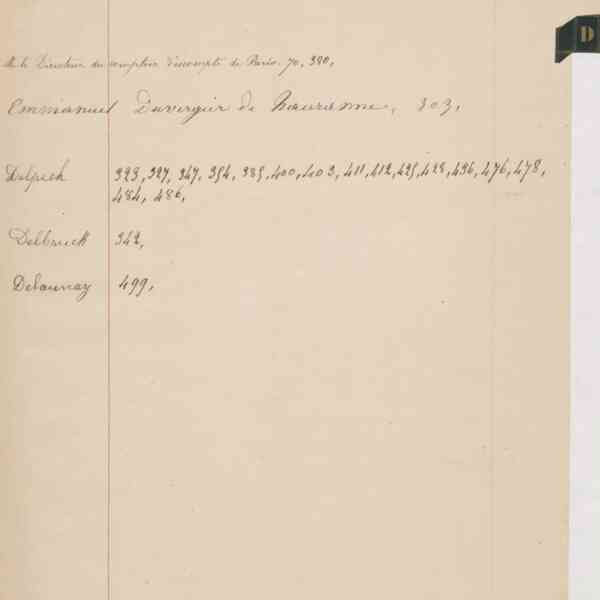 D
M. le Directeur du comptoir d'escompte de Paris. 70, 380,
Emmanuel Duvergier de Hauranne, 303,
Delpech 323, 327, 347, 354, 385, 400, 403, 411, 412, 425, 428, 436, 476, 478,
484, 486,
Delbruck 342,
Delaunay 499,